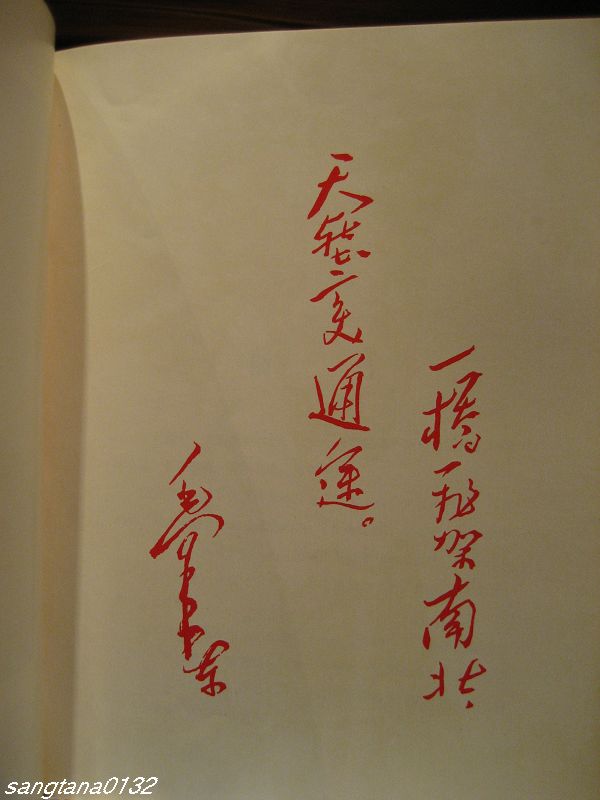 一橋飛架南北，
天塹变通途。
毛泽东
sangtana0132